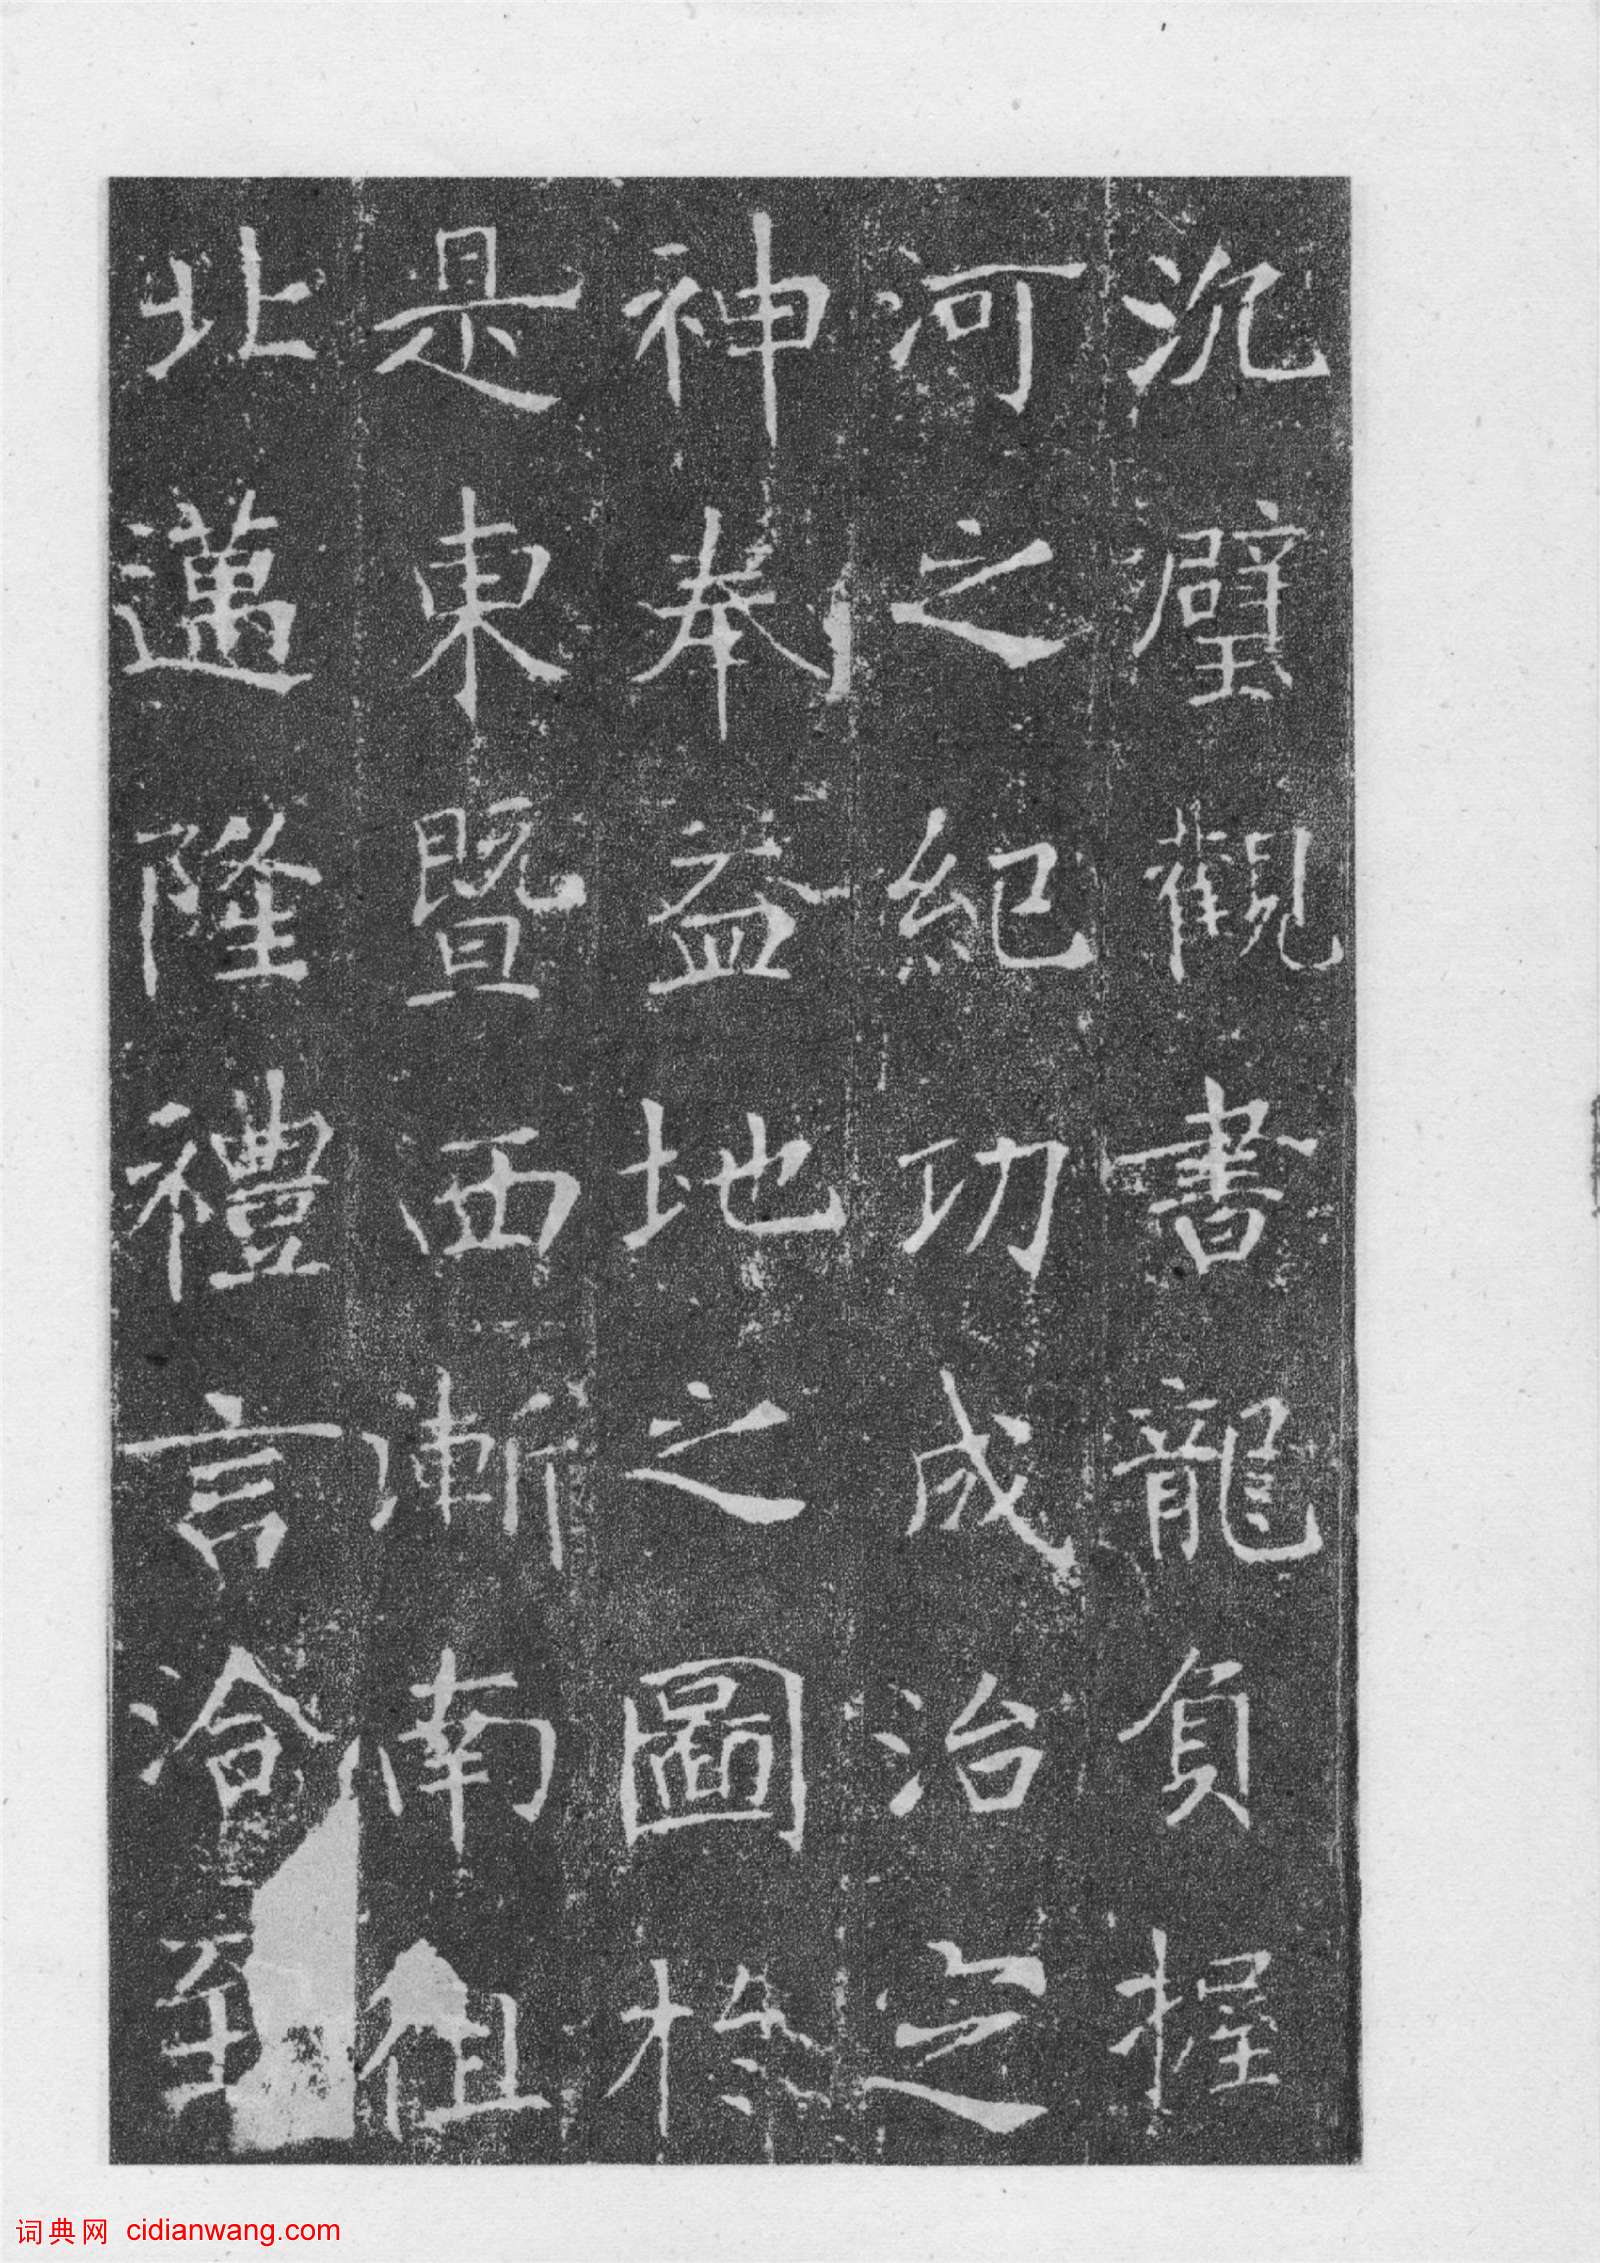 沉璧觀書龍負握
河之紀功成治之
神奉益地之圖於
是東暨西漸南徂
北邁隆禮言洽至
词典网 cidianwang.com